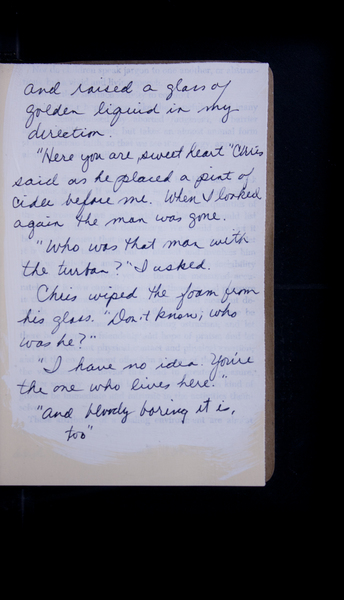 and raised a glass of
golden liquid in my
direction.
"Here you are, sweet heart" Chris
said as he placed a pint of
cider before me. When I looked
again the man was gone.
"Who was that man with
the turban?" I asked.
Chris wiped the foam from
his glass. "Don't know; who
was he?"
"I have no idea. You're
the one who lives here."
"And bloody boring it is,
too"